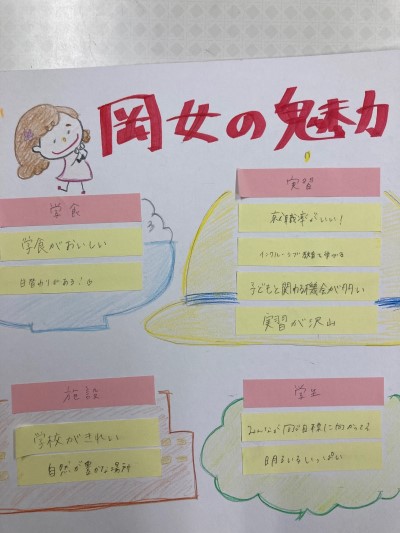 岡女の魅力
学食
学食がおいしい
日替わりがある!
実習
就職率がいい!
インクルーシブ教育を学べる
子どもと関わる機会が多い
実習が沢山
施設
学校がきれい
自然が豊かな場所
学生
みんなが同じ目標に向かってる
明るい子いっぱい